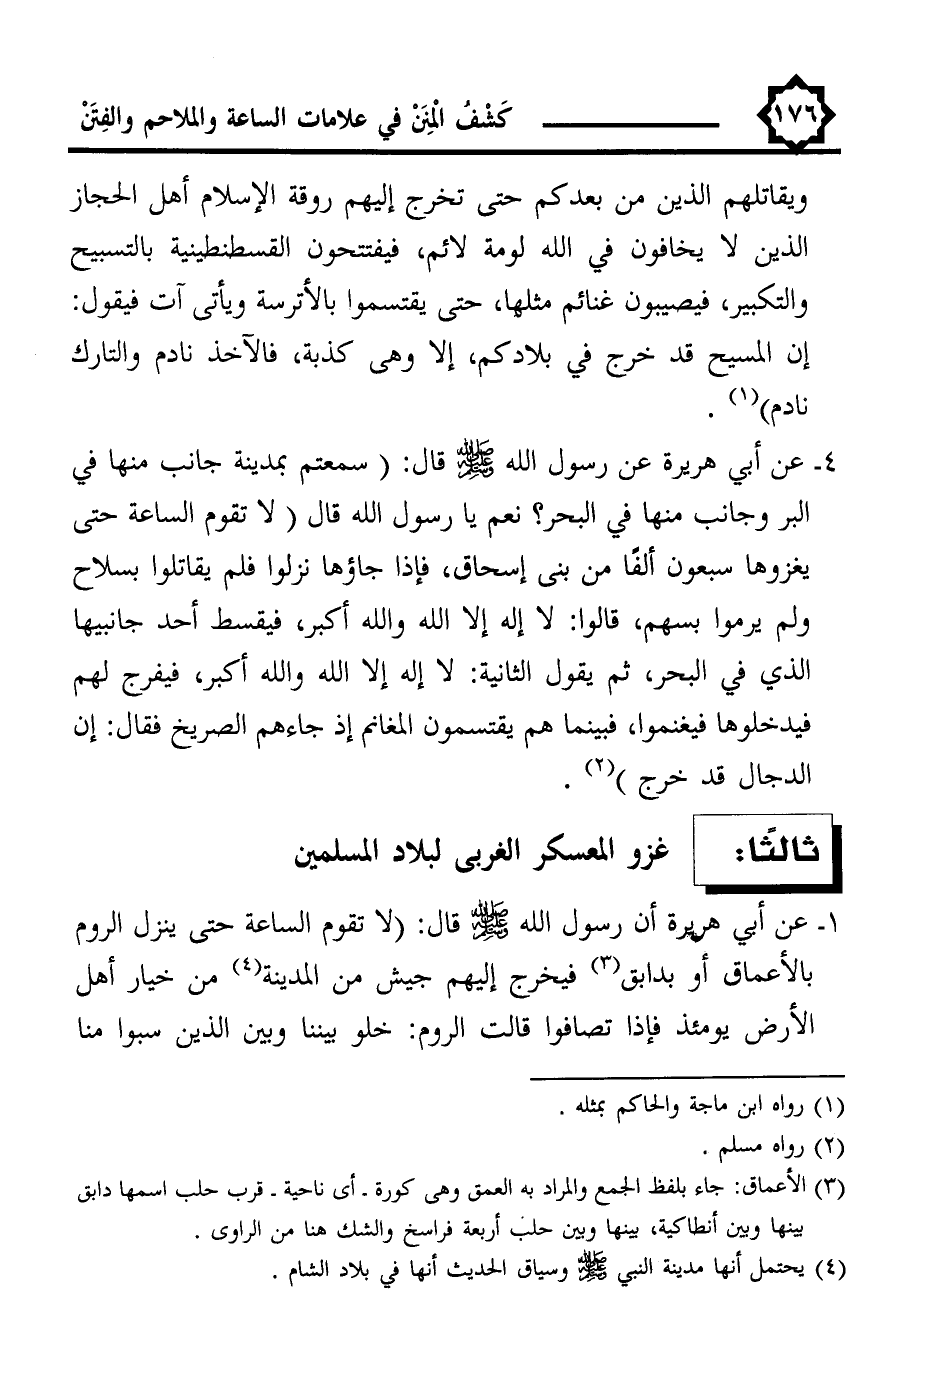 ١٧٦ كَشْفُ الْمِنَنْ في علامات الساعة والملاحم والفِتَنْ
ويقاتلهم الذين من بعدكم حتى تخرج إليهم روقة الإسلام أهل الحجاز
الذين لا يخافون في الله لومة لائم، فيفتتحون القسطنطينية بالتسبيح
والتكبير، فيصيبون غنائم مثلها، حتى يقتسموا بالأترسة ويأتى آت فيقول:
إن المسيح قد خرج في بلادكم، إلا وهى كذبة، فالآخذ نادم والتارك
نادم)(١) .
٤ـ عن أبي هريرة عن رسول الله ﷺ قال: ( سمعتم بمدينة جانب منها في
البر وجانب منها في البحر؟ نعم يا رسول الله قال ( لا تقوم الساعة حتى
يغزوها سبعون ألفًا من بنى إسحاق، فإذا جاؤها نزلوا فلم يقاتلوا بسلاح
ولم يرموا بسهم، قالوا: لا إله إلا الله والله أكبر، فيقسط أحد جانبيها
الذي في البحر، ثم يقول الثانية: لا إله إلا الله والله أكبر، فيفرج لهم
فيدخلوها فيغنموا، فبينما هم يقتسمون المغانم إذ جاءهم الصريخ فقال: إن
الدجال قد خرج )(٢) .
ثالثًا: غزو المعسكر الغربى لبلاد المسلمين
١ـ عن أبي هريرة أن رسول الله ﷺ قال: (لا تقوم الساعة حتى ينزل الروم
بالأعماق أو بدابق(٣) فيخرج إليهم جيش من المدينة(٤) من خيار أهل
الأرض يومئذ فإذا تصافوا قالت الروم: خلو بيننا وبين الذين سبوا منا
(١) رواه ابن ماجة والحاكم بمثله .
(٢) رواه مسلم .
(٣) الأعماق: جاء بلفظ الجمع والمراد به العمق وهى كورة ـ أى ناحية ـ قرب حلب اسمها دابق
بينها وبين أنطاكية، بينها وبين حلب أربعة فراسخ والشك هنا من الراوى .
(٤) يحتمل أنها مدينة النبي ﷺ وسياق الحديث أنها في بلاد الشام .